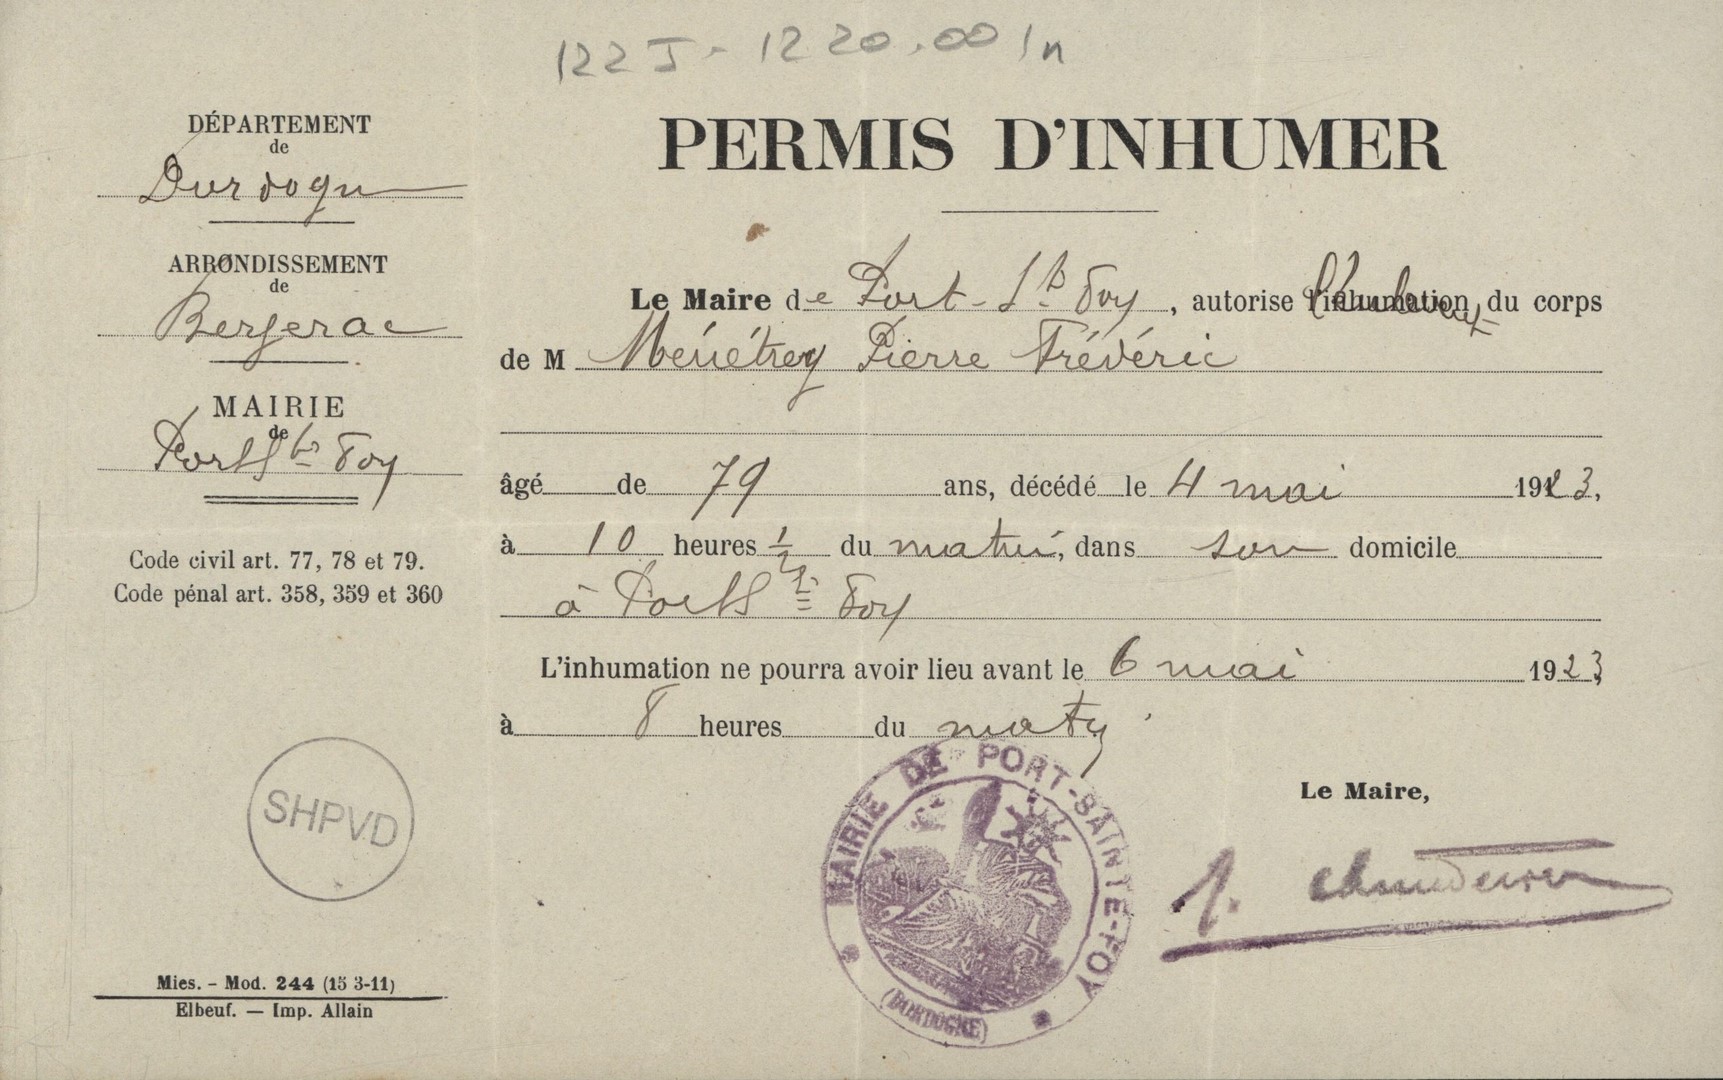 122 J - 1220.001n
DÉPARTEMENT
de
Dordogne
ARRONDISSEMENT
de
Bergerac
MAIRIE
de
Port Ste Foy
Code civil art. 77, 78 et 79.
Code pénal art. 358, 359 et 360
SHPVD
Mies. - Mod. 244 (15 3-11)
Elbeuf. — Imp. Allain
PERMIS D'INHUMER
Le Maire de Port-Ste Foy, autorise l'inhumation du corps
de M Ménétrey Pierre Frévéric
âgé de 79 ans, décédé le 4 mai 1923,
à 10 heures 1/2 du matin, dans son domicile
à Port Ste Foy
L'inhumation ne pourra avoir lieu avant le 6 mai 1923
à 8 heures du matin
Le Maire,
MAIRIE DE PORT-SAINTE-FOY
(DORDOGNE)